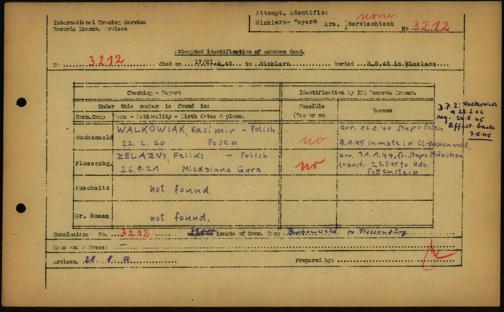 International Tracing Service
Records Branch, Arolsen
Attempt. Identific:
none
Winklarn-Weyers Krs. Oberviechtach
No 3212
Attempted identification of unknown dead.
No. 3212 died on 17/21.4.45 in Winklarn buried 8.5.45 in Winklarn
Checking - Report
Identification by ITS Records Branch.
Under this number is found in:
Possible
Reason
Conc.Camp Name - Nationality - Birth date & place.
Yes or no
Buchenwald
WALKOWIAK, Kasimir - Polish
22.2.20 Posen
no
arr. 12.8.40 Stapo Posen
8.1.45 inmate in CC-Buchenwald,
Flossenbg.
ZELAZNY, Feliks - Polish
26.9.21 Miedzinna Gora
no
arr. 31.1.44 fr. Stapo München
transf. 22.3.45 to Kdo.
Pottenstein
Auschwitz
not found.
Gr. Rosen
not found.
Conclusion No. 3232 inmate of Conc. Camp Buchenwald or Flossenbürg
Arolsen, 28. 8. 50
Prepared by: